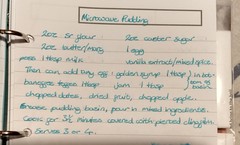 Microwave Pudding
2oz sr flour 2oz caster sugar
2oz butter/marg 1 egg
1tbsp milk vanilla extract/mixed spice.
Then can add tiny eg: golden syrup 1tbsp in bottom of basin
1tbsp jam 1tbsp
chopped dates, dried fruit, chopped apple.
Grease pudding basin, pour in mixed ingredients.
Cook for 3½ minutes covered with pierced clingfilm.
Serves 3 or 4.